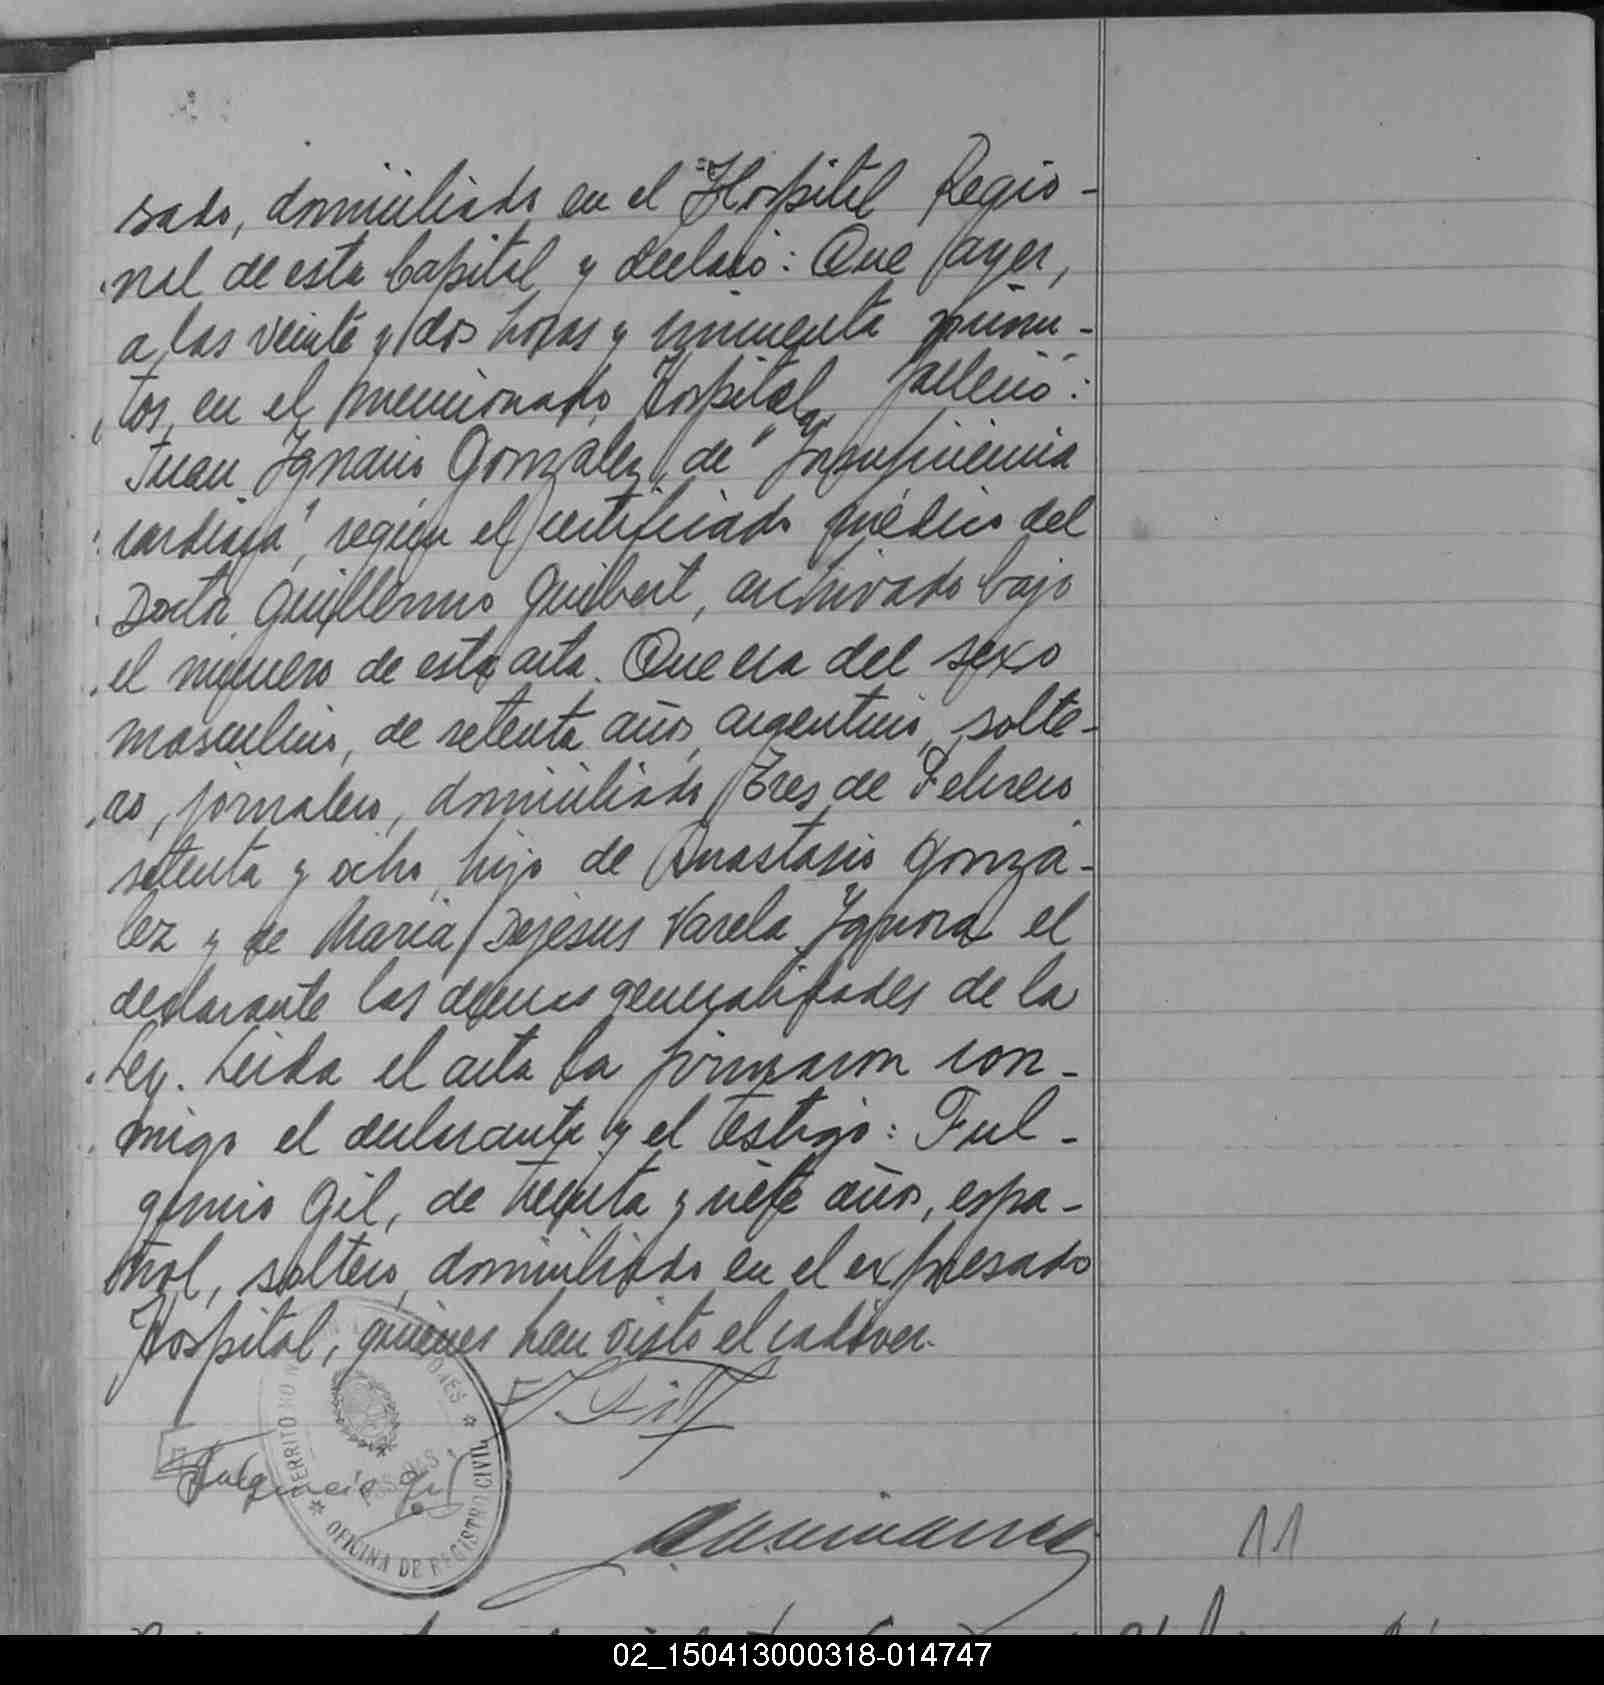 sado, domiciliado en el Hospital Regio-
nal de esta Capital y declaró: Que ayer,
a las veinte y dos horas y cincuenta minu-
tos, en el mencionado Hospital, falleció:
Juan Ignacio Gonzalez, de "Insuficiencia
cardiaca", según el certificado médico del
Doctor Guillermo Guibert, archivado bajo
el número de esta acta. Que era del sexo
masculino, de setenta años, argentino, solte-
ro, jornalero, domiciliado Tres de Febrero
setenta y ocho, hijo de Anastasio Gonzá-
lez y de Maria Dejesus Varela. Ignora el
declarante las demas generalidades de la
Ley. Leida el acta la firmaron con-
migo el declarante y el testigo: Ful-
gencio Gil, de treinta y siete años, espa-
ñol, soltero, domiciliado en el expresado
Hospital, quienes han visto el cadáver.
Fulgencio Gil
TERRITORIO NACIONAL DE MISIONES
POSADAS
OFICINA DE REGISTRO CIVIL
11
02_150413000318-014747